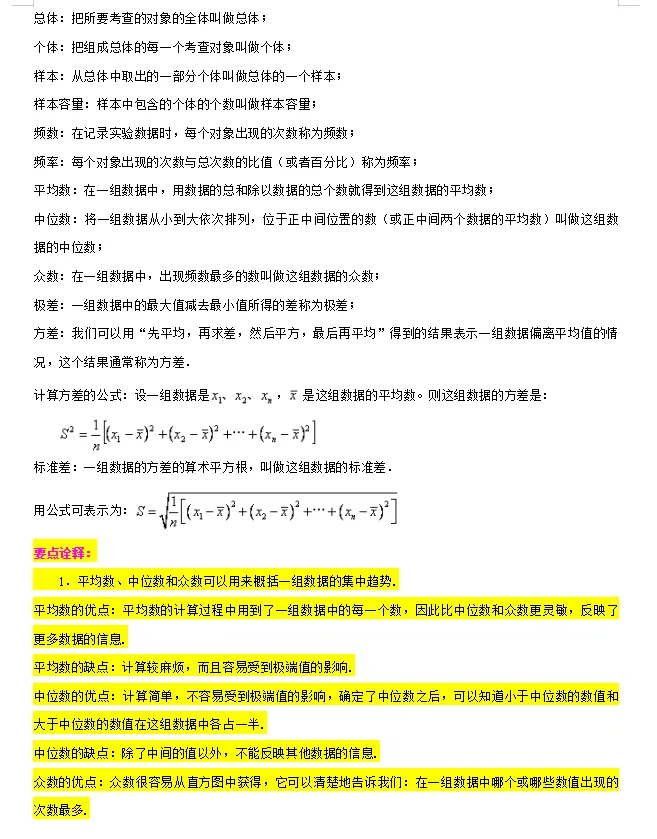 总体：把所要考查的对象的全体叫做总体；
个体：把组成总体的每一个考查对象叫做个体；
样本：从总体中取出的一部分个体叫做总体的一个样本；
样本容量：样本中包含的个体的个数叫做样本容量；
频数：在记录实验数据时，每个对象出现的次数称为频数；
频率：每个对象出现的次数与总次数的比值（或者百分比）称为频率；
平均数：在一组数据中，用数据的总和除以数据的总个数就得到这组数据的平均数；
中位数：将一组数据从小到大依次排列，位于正中间位置的数（或正中间两个数据的平均数）叫做这组数
据的中位数；
众数：在一组数据中，出现频数最多的数叫做这组数据的众数；
极差：一组数据中的最大值减去最小值所得的差称为极差；
方差：我们可以用“先平均，再求差，然后平方，最后再平均”得到的结果表示一组数据偏离平均值的情
况，这个结果通常称为方差．
计算方差的公式：设一组数据是x₁、x₂、xₙ，x̄ 是这组数据的平均数。则这组数据的方差是：
S² = 1/n[(x₁－x̄)²+(x₂－x̄)²+…+(xₙ－x̄)²]
标准差：一组数据的方差的算术平方根，叫做这组数据的标准差．
用公式可表示为：S=√(1/n[(x₁－x̄)²+(x₂－x̄)²+…+(xₙ－x̄)²])
要点诠释：
1．平均数、中位数和众数可以用来概括一组数据的集中趋势．
平均数的优点：平均数的计算过程中用到了一组数据中的每一个数，因此比中位数和众数更灵敏，反映了
更多数据的信息．
平均数的缺点：计算较麻烦，而且容易受到极端值的影响．
中位数的优点：计算简单，不容易受到极端值的影响，确定了中位数之后，可以知道小于中位数的数值和
大于中位数的数值在这组数据中各占一半．
中位数的缺点：除了中间的值以外，不能反映其他数据的信息．
众数的优点：众数很容易从直方图中获得，它可以清楚地告诉我们：在一组数据中哪个或哪些数值出现的
次数最多．